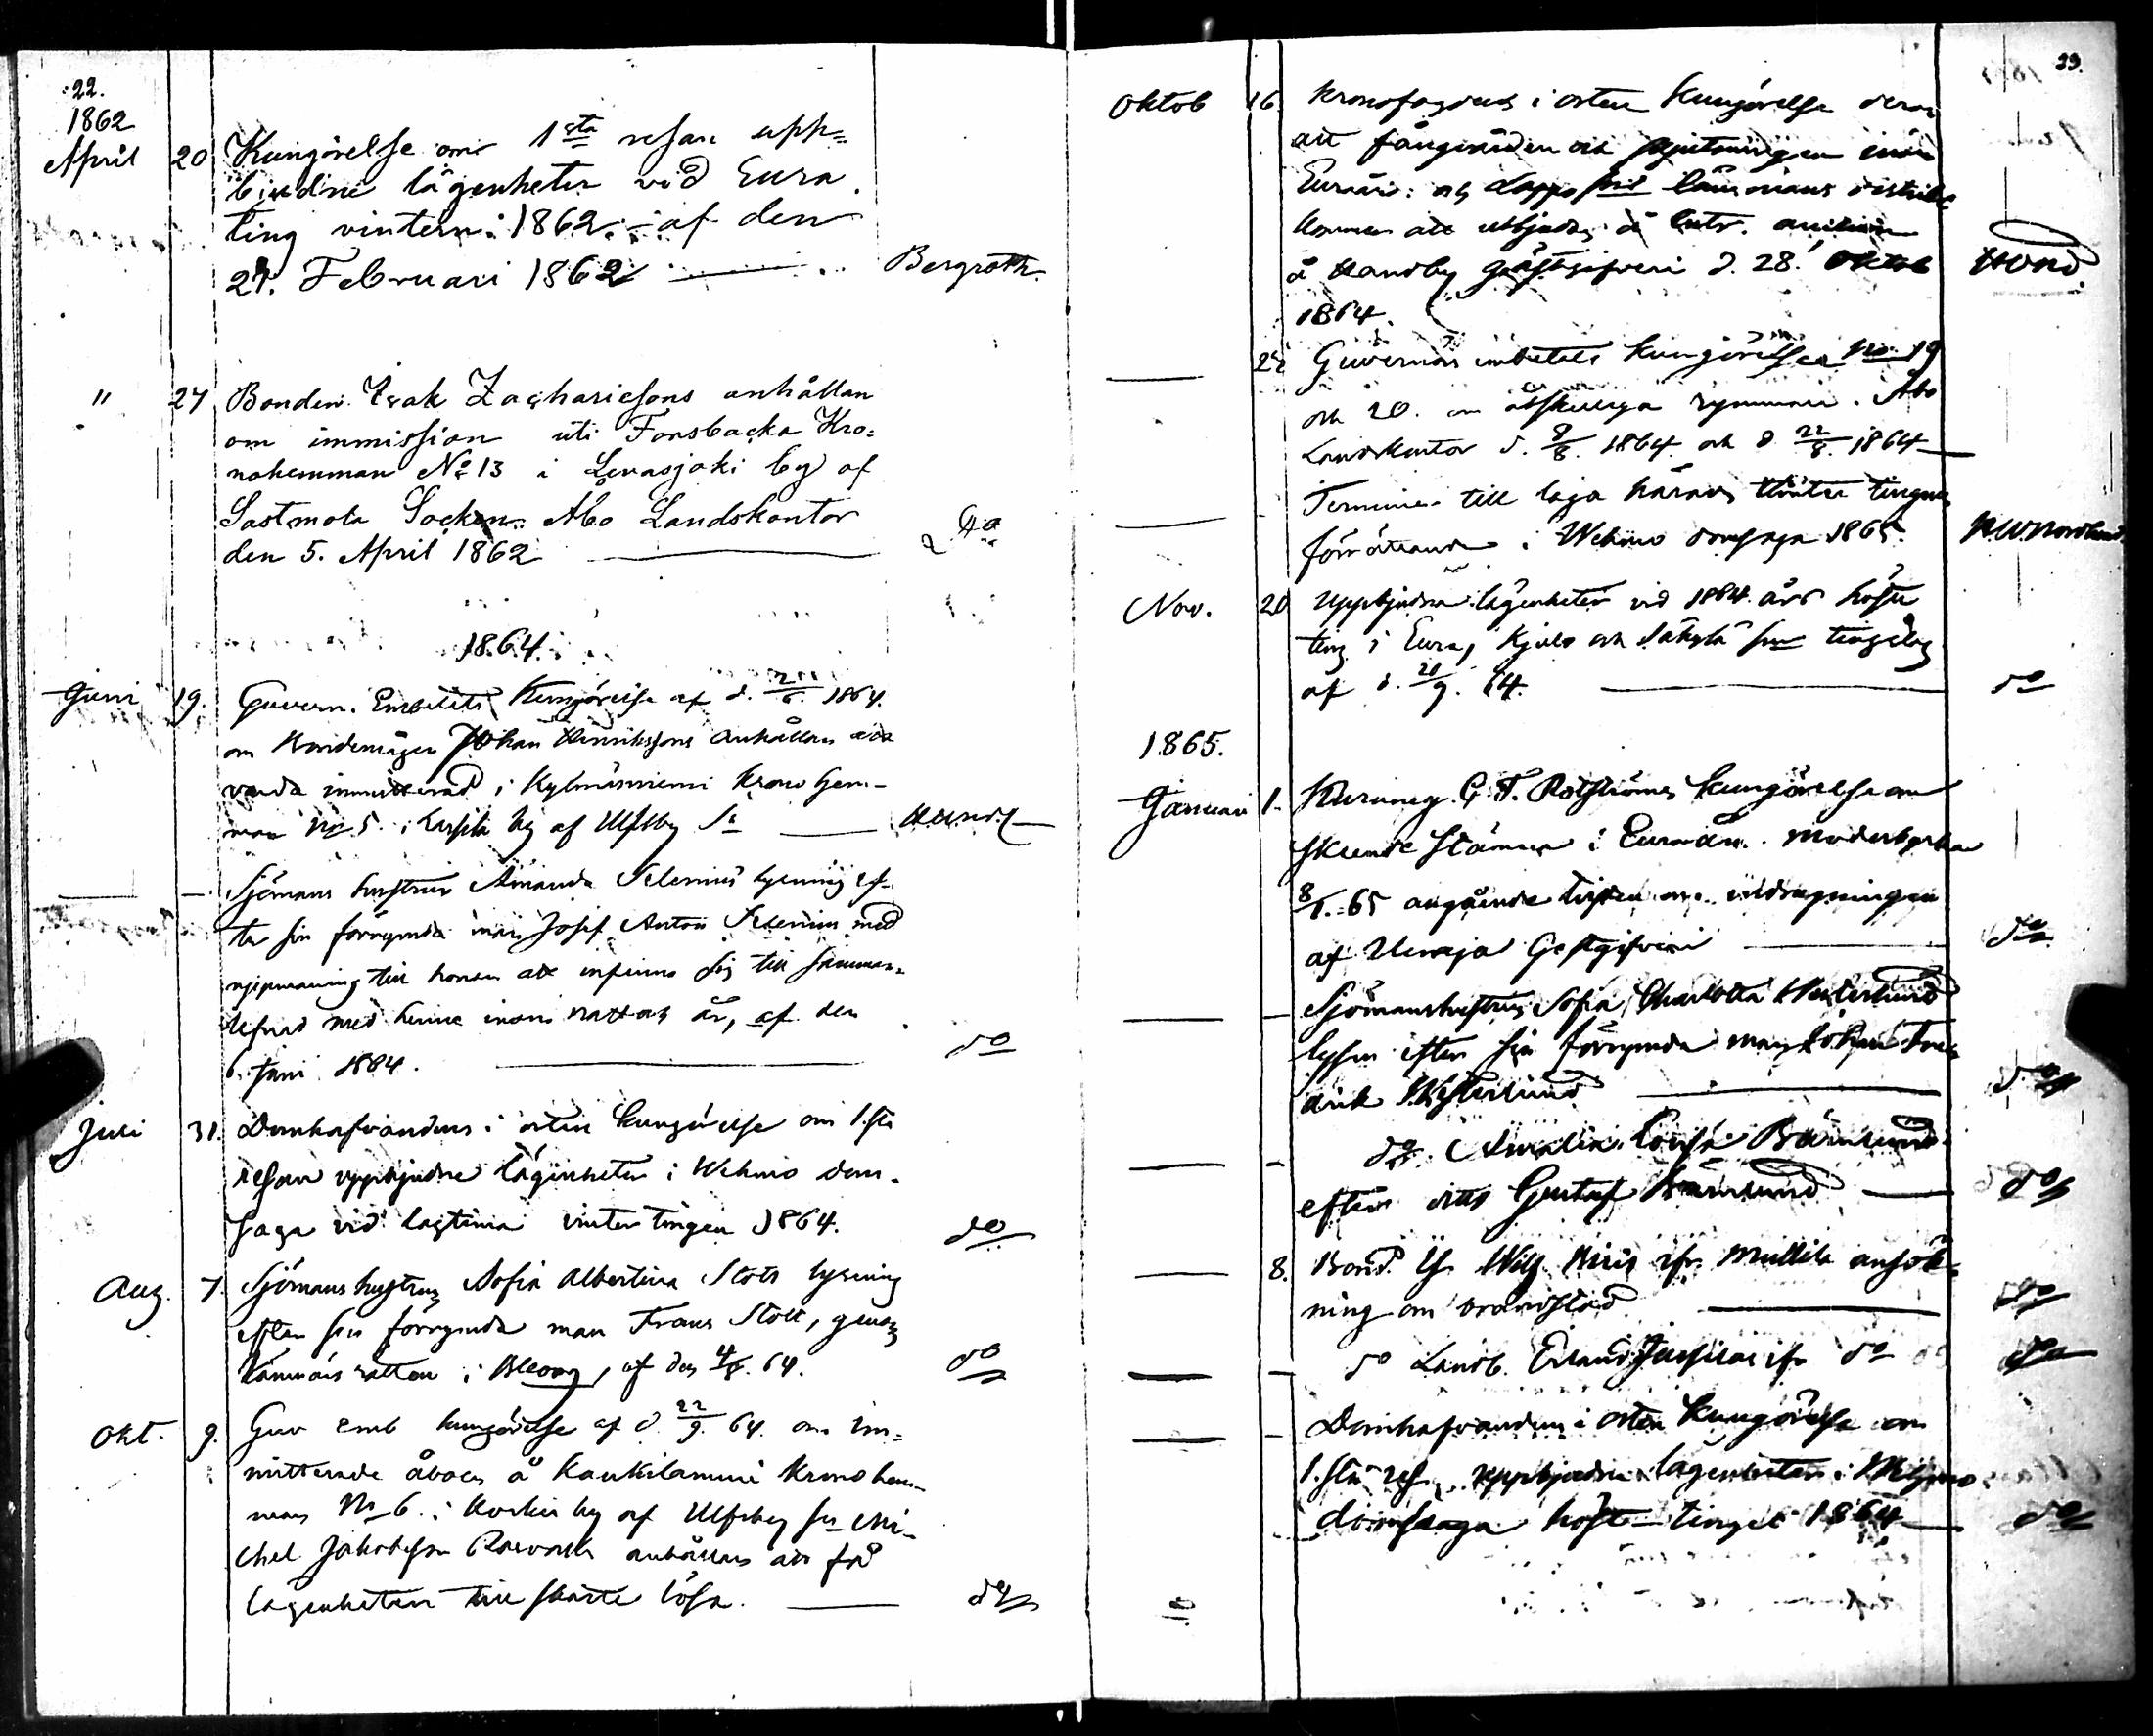 22.
1862
April 20 Kungörelse om 1sta resan upp=
bjudne lägenheter vid Eura
ting vintern 1862. af den
27. Februari 1862 Bergroth
" 27 Bonden Isak Zachariesons anhållan
om immission uti Forsbacka Kro=
nohemman No 13 i Levasjoki by af
Sastmola Socken. Åbo Landskontor
den 5. April 1862 do
1864.
Juni 19. Guvern. Embetets Kungörelse af d. 1864.
om Johan Henrikssons anhållan att
varda immitterad i Kylmäniemi Krono hem-
man No 5. i by af Ulfsby Sn
Sjömans hustrun Amanda Selenius lysning ef-
ter sin förrymda man Josef Anton Selenius med
uppmaning till honom att infinna sig till samman-
lefnad med henne inom natt och år, af den
6. Juni 1864. do
Juli 31. Domhafvandens i orten kungörelse om 1.sta
resan uppbjudne lägenheter i Wehmo dom-
saga vid lagtima vinter tingen 1864. do
Aug. 7. Sjömans hustrun Sofia Albertina Stolt lysning
efter sin förrymda man Frans Stolt, genom
Kämnärs rätten i af den 4/8. 64. do
Okt. 9. Guv emb kungörelse af d. 22/9. 64. om im=
mitterade åboen å Kaukilaniemi Krono hem-
man No 6. i by af Ulfsby sn Mi-
chel Jakobsson anhållan att få
lägenheten till skatte lösa. do
23.
Oktob 16. Kronofogdens i orten Kungörelse derom
att fångvården och skjutsningen inom
Euraåm. och Lappo länsmans distrikt
kommer att utbjudas å entr. auktion
å Handby gästgifveri d. 28. Oktob
1864.
Guvernörs embetets kungörelser No 19
och 20. om åtskilliga rymmare. Åbo
Landskontor d. 9/8. 1864. och d. 22/8. 1864
Terminer till laga härads vinter tingens
förrättande i Wehmo domsaga 1865. Nordlund
Nov. 20 Uppbjudna lägenheter vid 1864 års höste
ting i Eura, Kjulo och Säkylä sn tingslag
af d. 20/9. 64. do
1865.
Januari 1. G. F. kungörelse om
skeende stämma i Euraåm. moderkyrka
8/1. 65 angående tvisten om indragningen
af Gestgifveri do
Sjömanshustrun Sofia Charlotta Westerlund
lyser efter sin förrymda man Johan Fred
drik Westerlund do
do Amalia Lovisa
efter dito Gustaf do
8. Bond. ifr. ansök-
ning om brandstod do
do Landb. Erland ifr do do
Domhafvandens i orten Kungörelse om
1.sta res. uppbjudne lägenheter i Wehmo
domsaga höste tinget 1864 do